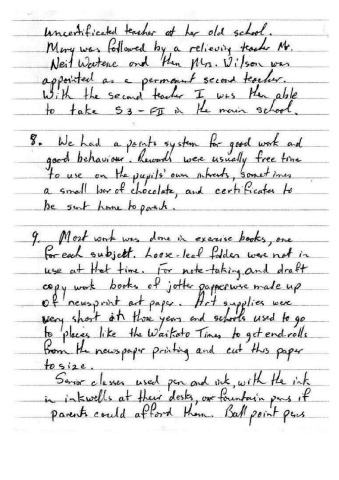 uncertificated teacher at her old school.
Mary was followed by a relieving teacher Mr.
Neil and then Mrs. Wilson was
appointed as a permanent second teacher.
With the second teacher I was then able
to take S3 - FII in the main school.
8. We had a points system for good work and
good behaviour. Rewards were usually free time
to use on the pupils' own interests, sometimes
a small bar of chocolate, and certificates to
be sent home to parents.
9. Most work was done in exercise books, one
for each subject. Loose-leaf folders were not in
use at that time. For note-taking and draft
copy work books of jotter paper were made up
of newsprint art paper. Art supplies were
very short in those years and schools used to go
to places like the Waikato Times to get end-rolls
from the newspaper printing and cut this paper
to size.
Senior classes used pen and ink, with the ink
in inkwells at their desks, or fountain pens if
parents could afford them. Ball point pens